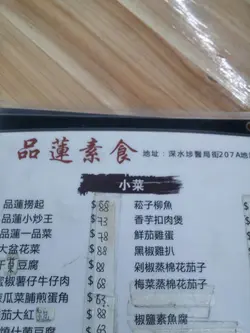 品蓮素食 地址：深水埗醫局街207A地
小菜
品蓮撈起 $68
品蓮小炒王 $73
品蓮一品菜 $78
大盆花菜 $88
豆腐 $68
椒薯仔牛仔肉 $68
瓜菜脯煎蛋角 $63
大紅 $88
什菌豆腐 $68
菘子柳魚
香芋扣肉煲
鮮茄雞蛋
黑椒雞扒
剁椒蒸棉花茄子
梅菜蒸棉花茄子
椒鹽素魚腐